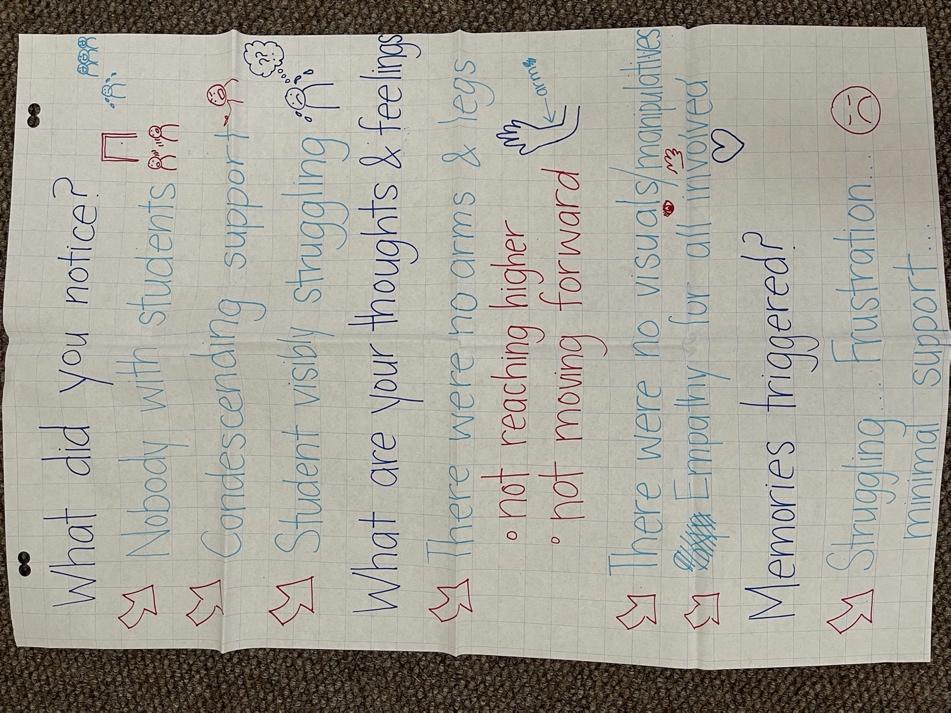 What did you notice?
Nobody with students
Condescending support
Student visibly struggling
???
What are your thoughts & feelings
There were no arms & legs
arms
• not reaching higher
• not moving forward
There were no visuals/manipulatives
Empathy for all involved
Memories triggered?
Struggling.... Frustration....
minimal support.....